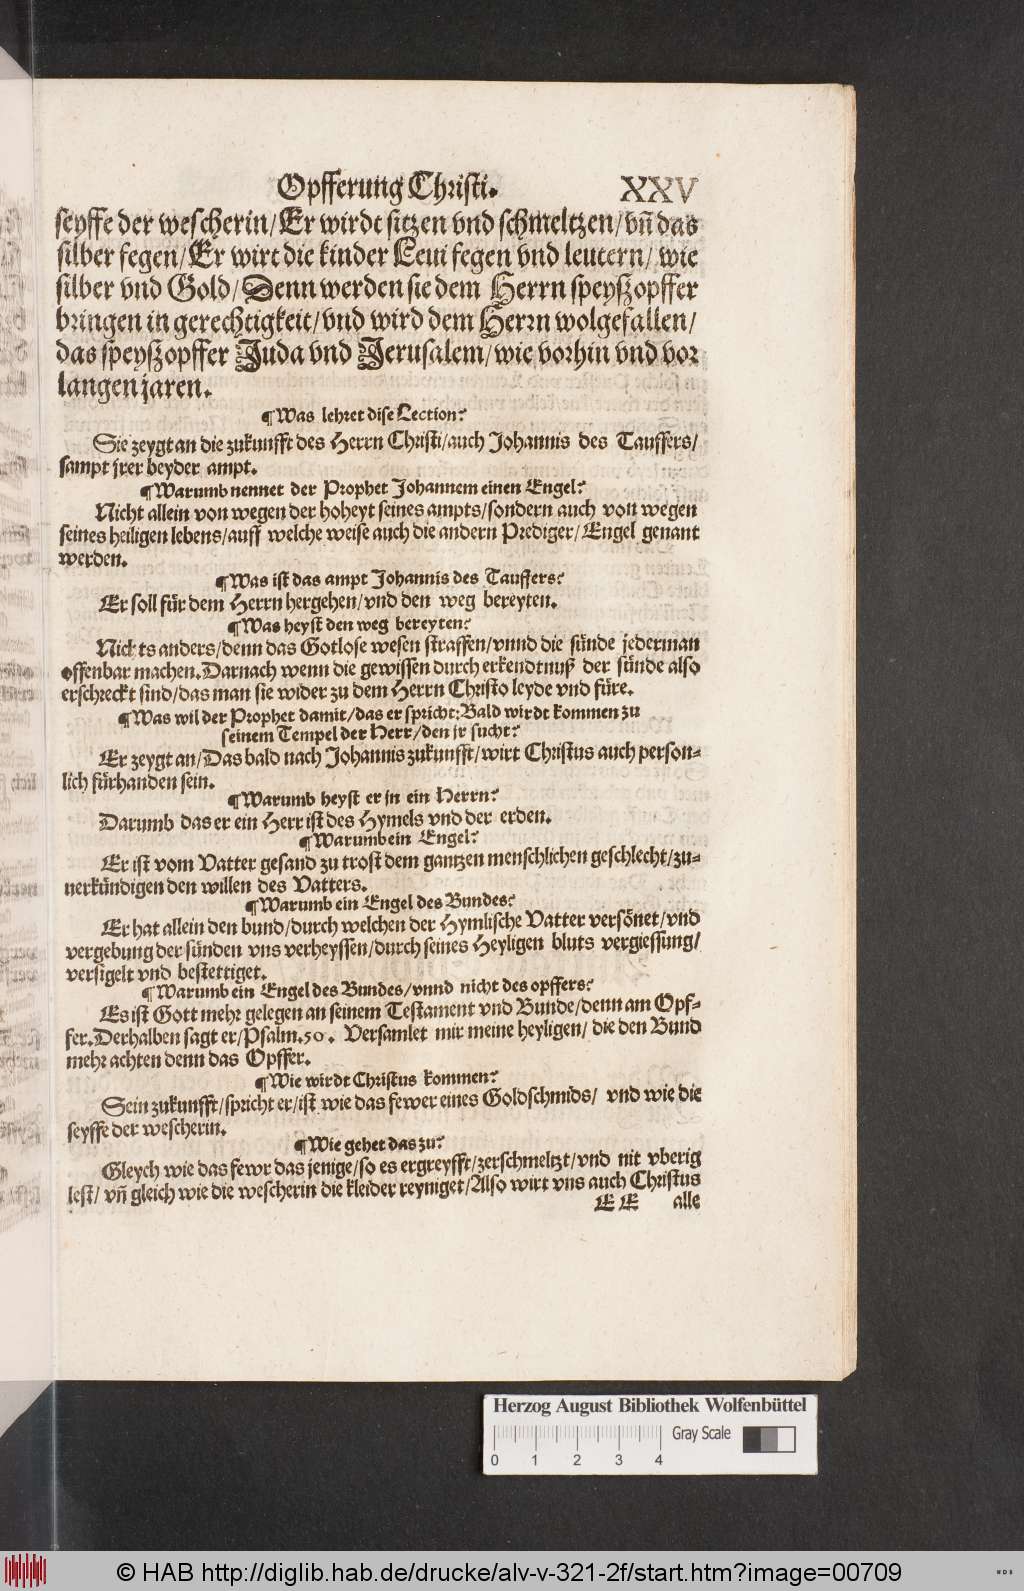 Opfferung Christi. XXV
seyffe der wescherin/ Er wirdt sitzen vnd schmeltzen/ vñ das
silber fegen/ Er wirt die kinder Leui fegen vnd leutern/ wie
silber vnd Gold/ Denn werden sie dem Herrn speyßopffer
bringen in gerechtigkeit/ vnd wird dem Herrn wolgefallen/
das speyßopffer Juda vnd Jerusalem/ wie vorhin vnd vor
langen jaren.
¶ Was lehret dise Lection?
Sie zeygt an die zukunfft des Herrn Christi/ auch Johannis des Tauffers/
sampt jrer beyder ampt.
¶ Warumb nennet der Prophet Johannem einen Engel?
Nicht allein von wegen der hoheyt seines ampts/ sondern auch von wegen
seines heiligen lebens/ auff welche weise auch die andern Prediger/ Engel genant
werden.
¶ Was ist das ampt Johannis des Tauffers?
Er soll für dem Herrn hergehen/ vnd den weg bereyten.
¶ Was heyst den weg bereyten?
Nichts anders/ denn das Gotlose wesen straffen/ vnnd die sünde jederman
offenbar machen. Darnach wenn die gewissen durch erkendtnuß der sünde also
erschreckt sind/ das man sie wider zu dem Herrn Christo leyde vnd füre.
¶ Was wil der Prophet damit/ das er spricht: Bald wirdt kommen zu
seinem Tempel der Herr/ den jr sucht?
Er zeygt an/ Das bald nach Johannis zukunfft/ wirt Christus auch person-
lich fürhanden sein.
¶ Warumb heyst er jn ein Herrn?
Darumb das er ein Herr ist des Hymels vnd der erden.
¶ Warumb ein Engel?
Er ist vom Vatter gesand zu trost dem gantzen menschlichen geschlecht/ zu-
uerkündigen den willen des Vatters.
¶ Warumb ein Engel des Bundes?
Er hat allein den bund/ durch welchen der Hymlische Vatter versönet/ vnd
vergebung der sünden vns verheyssen/ durch seines Heyligen bluts vergiessung/
versigelt vnd bestettiget.
¶ Warumb ein Engel des Bundes/ vnnd nicht des opffers?
Es ist Gott mehr gelegen an seinem Testament vnd Bunde/ denn am Opf-
fer. Derhalben sagt er/ Psalm. 50. Versamlet mir meine heyligen/ die den Bund
mehr achten denn das Opffer.
¶ Wie wirdt Christus kommen?
Sein zukunfft/ spricht er/ ist wie das fewer eines Goldschmids/ vnd wie die
seyffe der wescherin.
¶ Wie gehet das zu?
Gleych wie das fewr das jenige/ so es ergreyfft/ zerschmeltzt/ vnd nit vberig
lest/ vñ gleich wie die wescherin die kleider reyniget/ Also wirt vns auch Christus
EE alle
Herzog August Bibliothek Wolfenbüttel
Gray Scale
0 1 2 3 4
© HAB http://diglib.hab.de/drucke/alv-v-321-2f/start.htm?image=00709